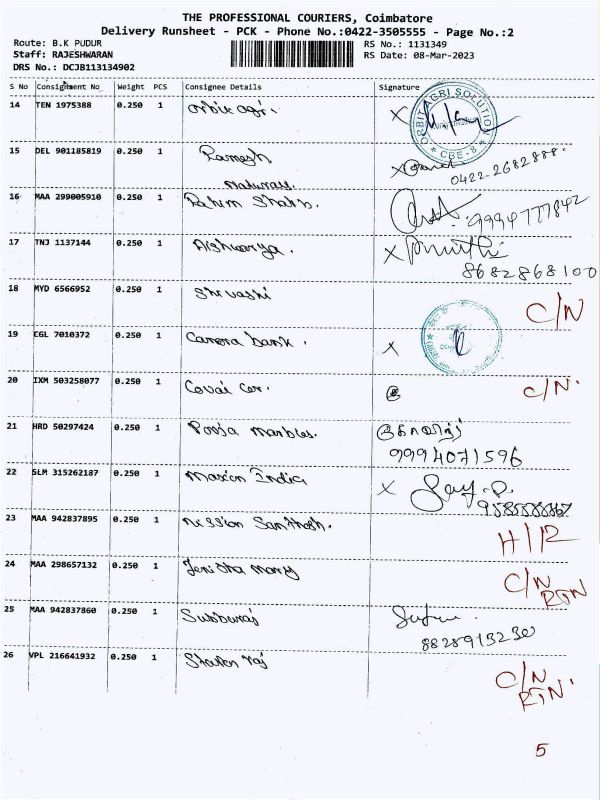 THE PROFESSIONAL COURIERS, Coimbatore
Delivery Runsheet - PCK - Phone No.:0422-3505555 - Page No.:2
Route: B.K PUDUR
RS No.: 1131349
Staff: RAJESHWARAN
RS Date: 08-Mar-2023
DRS No.: DCJB113134902
S No Consignment No Weight PCS Consignee Details Signature
14 TEN 1975388 0.250 1 orbit agri. X
ORBIT AGRI SOLUTION
CBE-8
15 DEL 901185819 0.250 1 Ramesh X
0422-2682888.
16 MAA 299005910 0.250 1 Rahim 9994777842
17 TNJ 1137144 0.250 1 Aishwarya. X
8682868100
18 MYD 6566952 0.250 1 C/N
19 CGL 7010372 0.250 1 Canara bank. X
20 IXM 503258077 0.250 1 Covai car. C/N.
21 HRD 50297424 0.250 1 Pooja marbles.
9994071596
22 SLM 315262187 0.250 1 India X
23 MAA 942837895 0.250 1 Santhosh.
24 MAA 298657132 0.250 1 Jenisha mary C/N
RTN
25 MAA 942837860 0.250 1 Subburaj
8828913230
26 VPL 216641932 0.250 1 Sharon raj C/N
RTN.
5